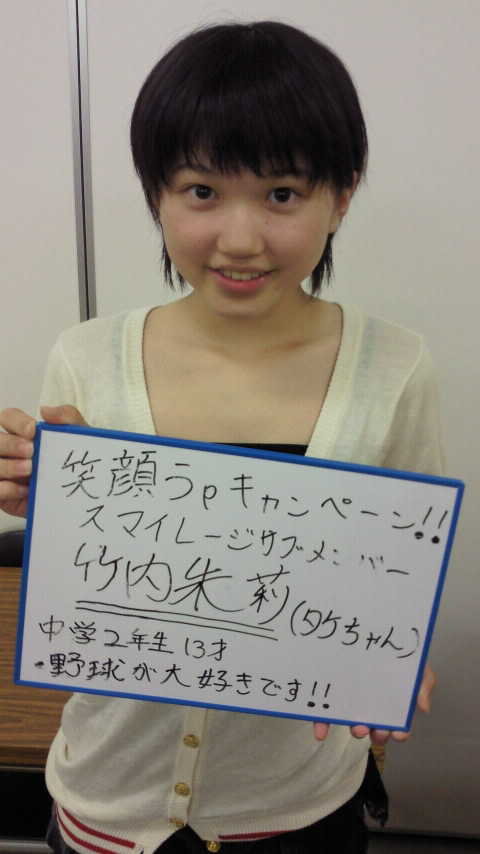 笑顔うpキャンペーン!!
スマイレージサブメンバー
竹内朱莉(タケちゃん)
中学2年生 13才
・野球が大好きです!!